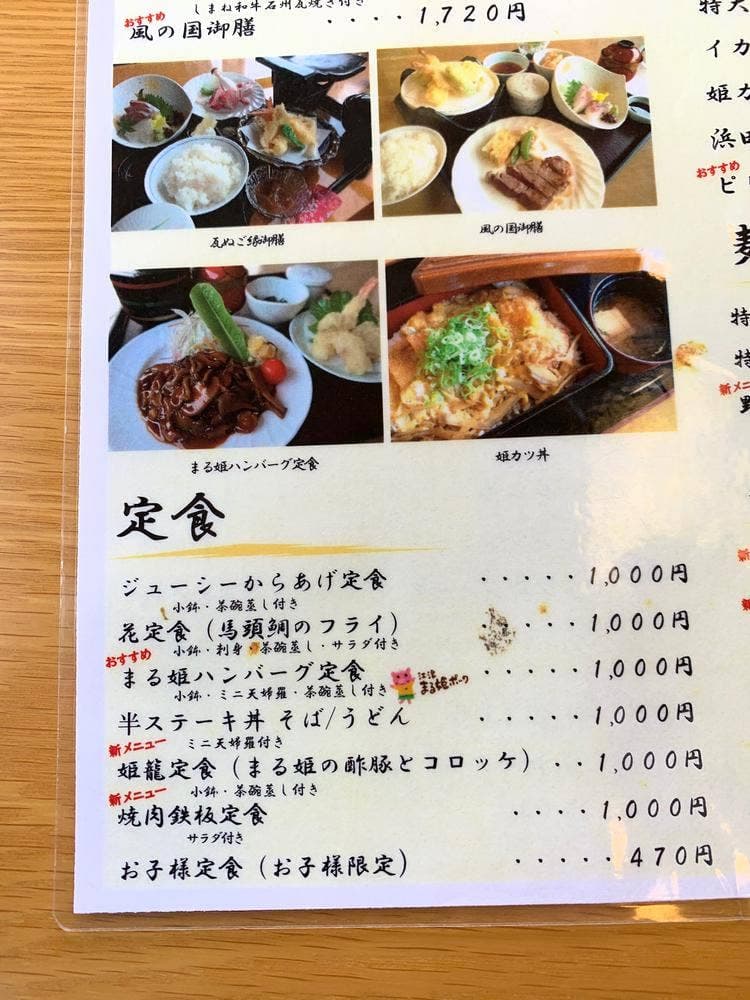 しまね和牛石州瓦焼き付き
おすすめ
風の国御膳 ････1,720円
瓦ぬご縁御膳
風の国御膳
まる姫ハンバーグ定食
姫カツ丼
定食
ジューシーからあげ定食 ･････1,000円
小鉢・茶碗蒸し付き
花定食（馬頭鯛のフライ） ･････1,000円
小鉢・刺身・茶碗蒸し・サラダ付き
おすすめ
まる姫ハンバーグ定食 江津まる姫ポーク ･････1,000円
小鉢・ミニ天婦羅・茶碗蒸し付き
半ステーキ丼 そば/うどん ･････1,000円
ミニ天婦羅付き
新メニュー
姫龍定食（まる姫の酢豚とコロッケ） ･･1,000円
小鉢・茶碗蒸し付き
新メニュー
焼肉鉄板定食 ････1,000円
サラダ付き
お子様定食（お子様限定） ･････470円
特大
イカ
姫カ
浜田
おすすめ
ピ
特
特
新メニ
野
新
新